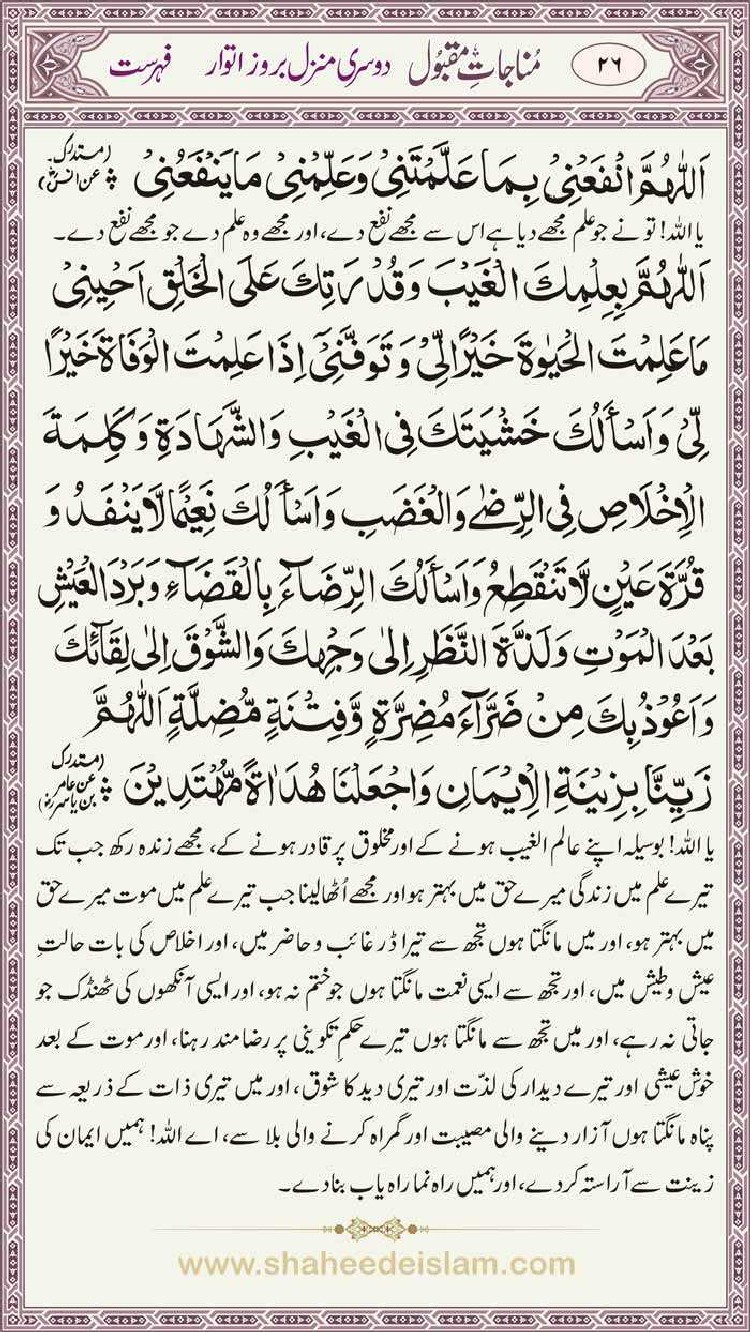 ۲۶ مُناجاتِ مقبُول دوسری منزل بروز اتوار فہرست
اَللّٰهُمَّ انْفَعْنِیْ بِمَا عَلَّمْتَنِیْ وَعَلِّمْنِیْ مَا یَنْفَعُنِیْ (مستدرک عن انسؓ)
یا اللہ! تو نے جو علم مجھے دیا ہے اس سے مجھے نفع دے، اور مجھے وہ علم دے جو مجھے نفع دے۔
اَللّٰهُمَّ بِعِلْمِكَ الْغَیْبَ وَقُدْرَتِكَ عَلَی الْخَلْقِ اَحْیِنِیْ
مَا عَلِمْتَ الْحَیٰوةَ خَیْرًا لِّیْ وَتَوَفَّنِیْٓ اِذَا عَلِمْتَ الْوَفَاةَ خَیْرًا
لِّیْ وَاَسْأَلُكَ خَشْیَتَكَ فِی الْغَیْبِ وَالشَّهَادَةِ وَكَلِمَةَ
الْاِخْلَاصِ فِی الرِّضٰی وَالْغَضَبِ وَاَسْأَلُكَ نَعِیْمًا لَّا یَنْفَدُ وَ
قُرَّةَ عَیْنٍ لَّا تَنْقَطِعُ وَاَسْأَلُكَ الرِّضَآءَ بِالْقَضَآءِ وَبَرْدَ الْعَیْشِ
بَعْدَ الْمَوْتِ وَلَذَّةَ النَّظَرِ اِلٰی وَجْهِكَ وَالشَّوْقَ اِلٰی لِقَآئِكَ
وَاَعُوْذُ بِكَ مِنْ ضَرَّآءَ مُضِرَّةٍ وَّفِتْنَةٍ مُّضِلَّةٍ اَللّٰهُمَّ
زَیِّنَّا بِزِیْنَةِ الْاِیْمَانِ وَاجْعَلْنَا هُدَاةً مُّهْتَدِیْنَ (مستدرک عن عامر بن یاسرؓ)
یا اللہ! بوسیلہ اپنے عالم الغیب ہونے کے اور مخلوق پر قادر ہونے کے، مجھے زندہ رکھ جب تک
تیرے علم میں زندگی میرے حق میں بہتر ہو اور مجھے اُٹھالینا جب تیرے علم میں موت میرے حق
میں بہتر ہو، اور میں مانگتا ہوں تجھ سے تیرا ڈر غائب و حاضر میں، اور اخلاص کی بات حالتِ
عیش وطیش میں، اور تجھ سے ایسی نعمت مانگتا ہوں جو ختم نہ ہو، اور ایسی آنکھوں کی ٹھنڈک جو
جاتی نہ رہے، اور میں تجھ سے مانگتا ہوں تیرے حکمِ تکوینی پر رضامند رہنا، اور موت کے بعد
خوش عیشی اور تیرے دیدار کی لذّت اور تیری دید کا شوق، اور میں تیری ذات کے ذریعہ سے
پناہ مانگتا ہوں آزار دینے والی مصیبت اور گمراہ کرنے والی بلا سے، اے اللہ! ہمیں ایمان کی
زینت سے آراستہ کردے، اور ہمیں راہ نما راہ یاب بنادے۔
www.shaheedeislam.com